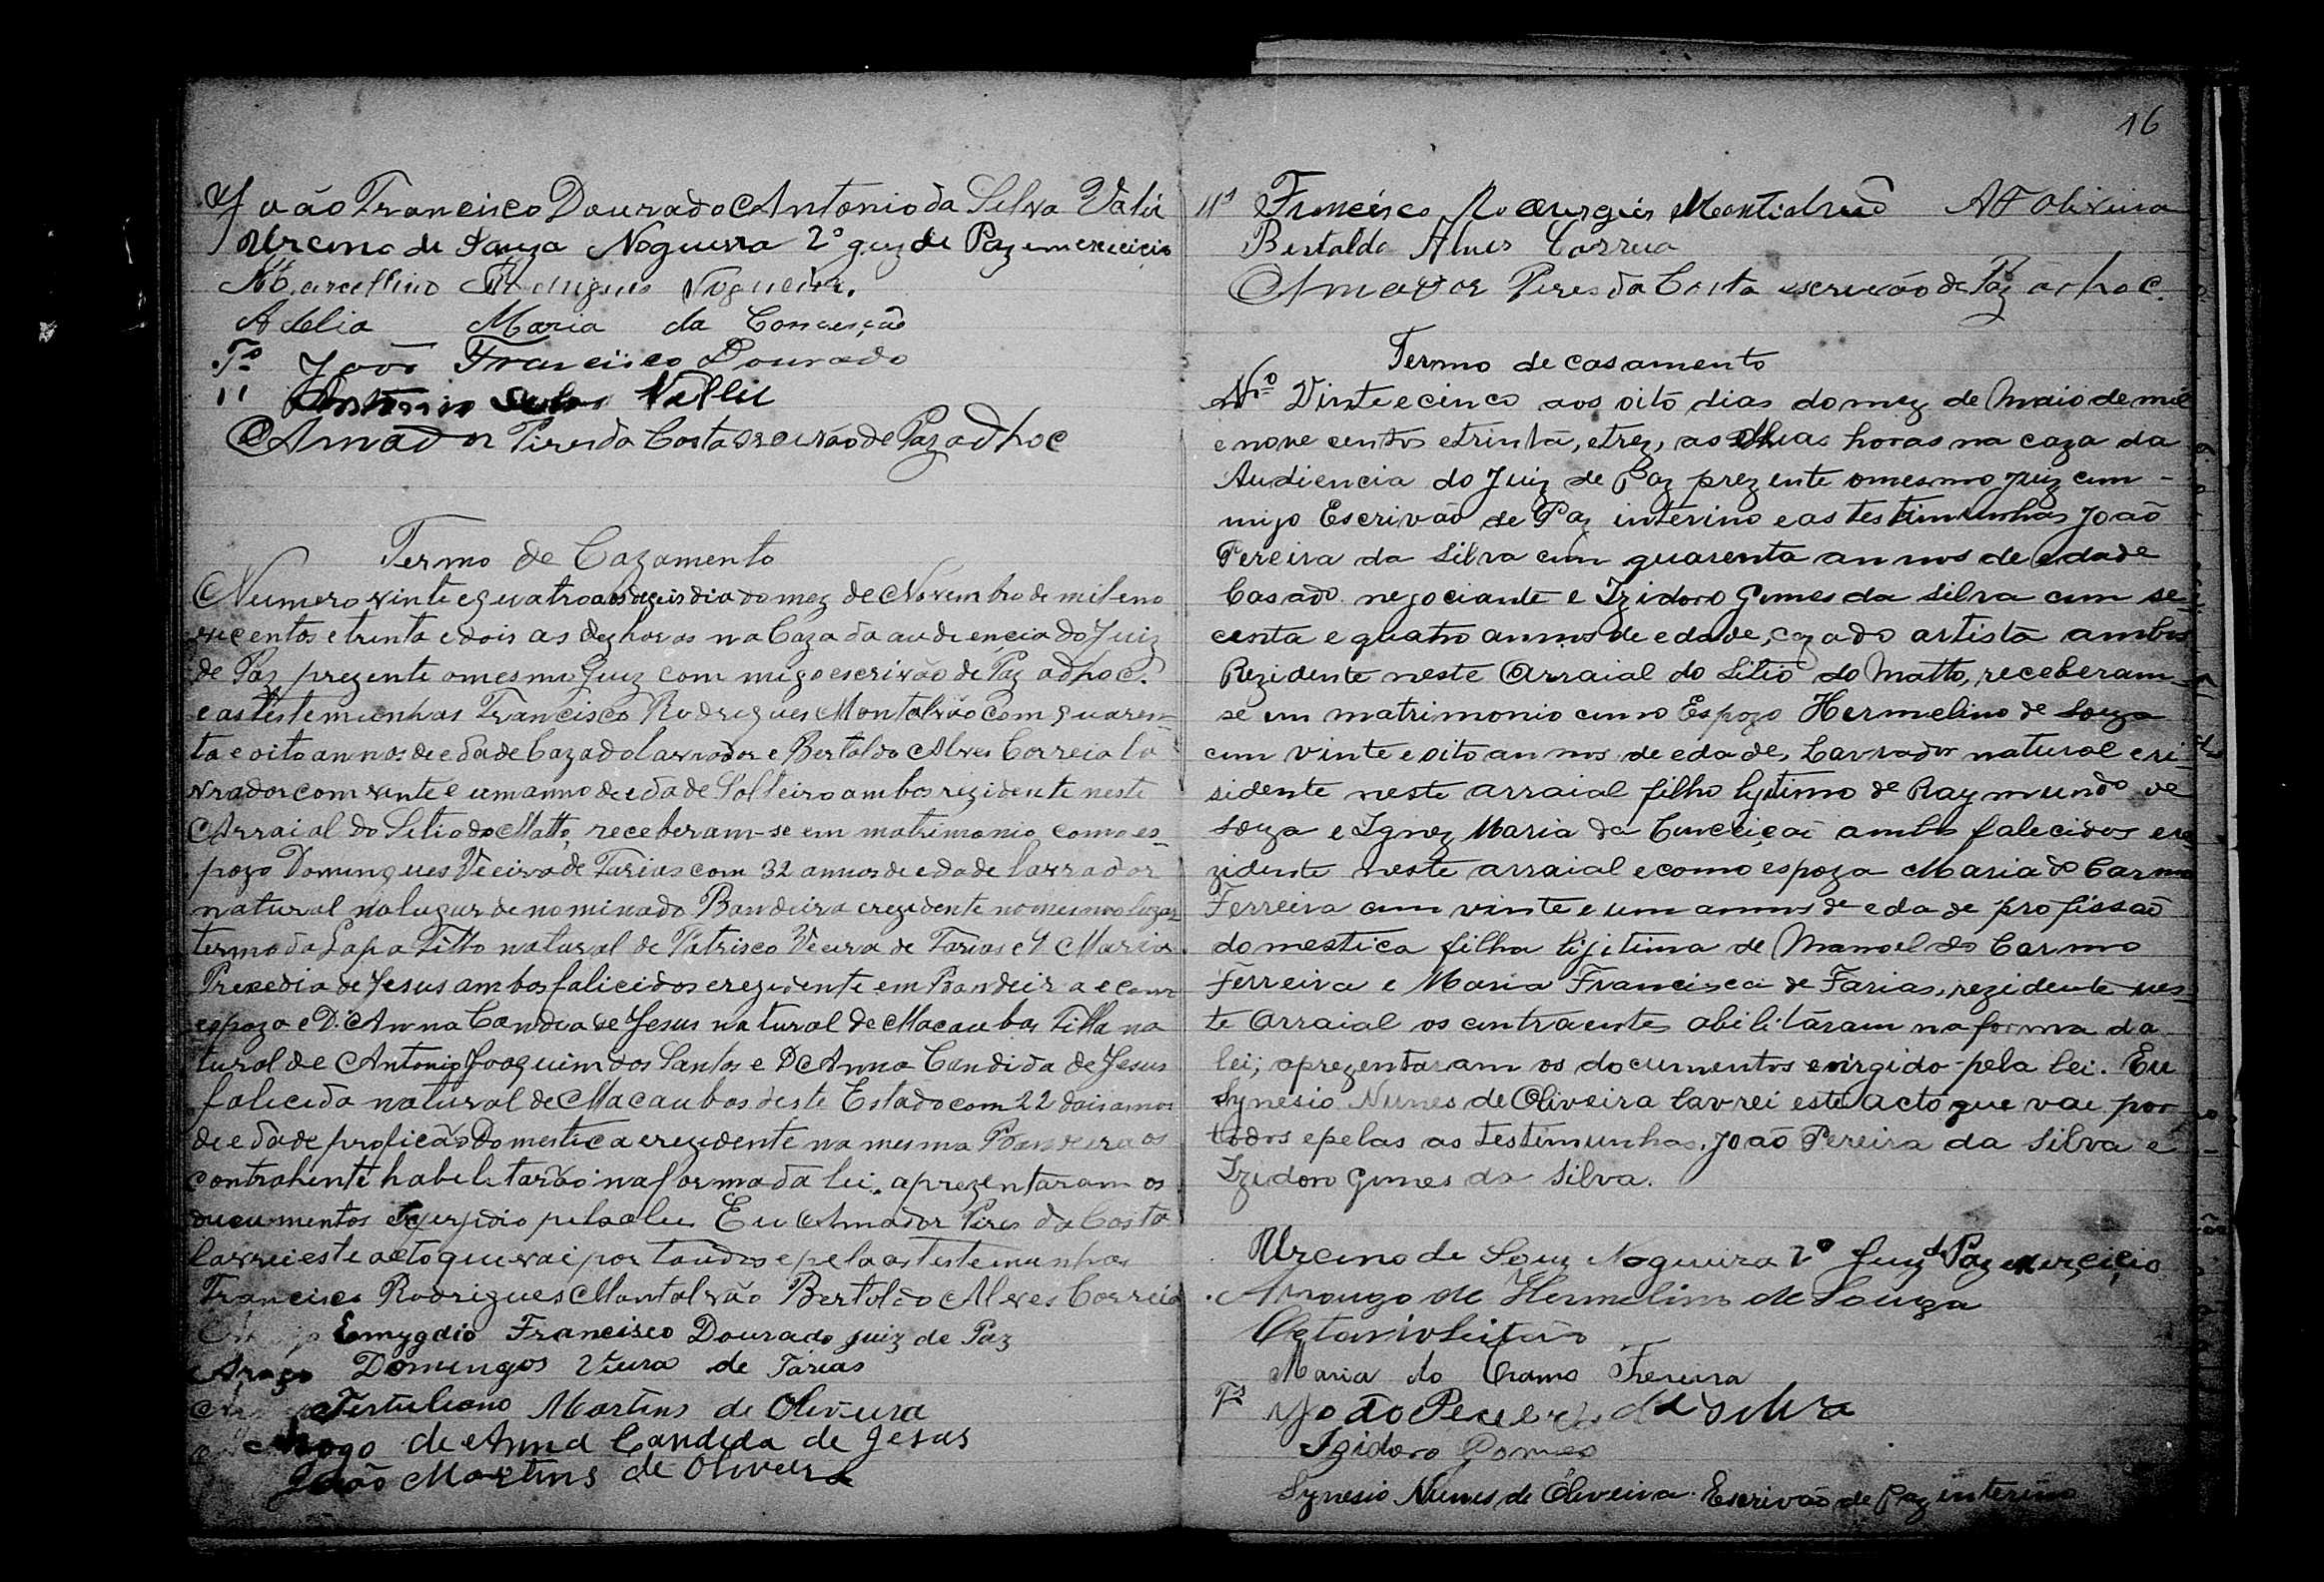 João Francisco Dourado Antonio da Silva
Urcino de Souza Nogueira 2º juiz de Paz em exercicio
Marcellino Rodrigues Nogueira.
Adelia Maria da Conceição
Tª João Francisco Dourado
" Antonio
Amador Pires da Costa escrivão de Paz adhoc
Termo de Cazamento
Numero vinte e quatro aos dia do mez de Novembro de mil eno
vecentos e trenta e dois as dez horas na Caza da audiencia do Juiz
de Paz prezente omesmo Juiz com migo escrivão de Paz adhoc.
e as testemunhas Francisco Rodrigues Montalvão com quaren-
ta e oito annos de edade Cazado lavrador e Bertoldo Alves Correia la
vrador com vente e um anno de edade Solteiro ambos rezidente neste
Arraial do Sitio do Matto, receberam-se em matrimonio, como es-
pozo Domingues Vieira de Farias com 32 annos de edade lavrador
natural no lugar denominado Bandeira erezidente nomesmo lugar
termo da Lapa Filho natural de Patrisco Vieira de Farias e Maria
Prexedia de Jesus ambos falicidos erezidente em Bandeira e com
espoza e D. Anna Candida de Jesus natural de Macaubas Filha na
tural de Antonio Joaquim dos Santos e D Anna Candida de Jesus
falecida natural de Macaubas deste Estado com 22 dois annos
de edade proficão Domestica erezidente na mesma Bandeira os
contrahente habeletarão na forma da lei. aprezentaram os
ducumentos pela lei Eu Amador Pires da Costa
lavrei este acto que vai por toudos e pela as testemunhas
Francisco Rodrigues Montalvão Bertoldo Alves Correia
Emygdio Francisco Dourado juiz de Paz
Arogo Domingos Vieira de Farias
Tertuliano Martins de Oliveira
Arogo de Anna Candida de Jesus
João Martins de Oliveira
16
" Francisco Montalvão A F Oliveira
Bertaldo Alves Correia
Amador Pires da Costa escrivão de Paz adhoc.
Termo de casamento
Nº Vinte e cinco aos oitô dias do mez de Maio de mil
e nove centos e trinta, e trez, as horas na caza da
Audiencia do Juiz de Paz prezente omesmo juiz cum-
migo Escrivão de Paz interino e as testimunhas João
Pereira da Silva cum quarenta annos de edade
Casado negociante e Izidoro Gomes da Silva cum se-
centa e quatro annos de edade, cazado artista ambos
Rezidente neste Arraial do Sitio do Matto, receberam-
se em matrimonio cumo Espozo Hermelino de Souza
cum vinte e oito annos de edade, Lavrador natural e ri-
sidente neste arraial filho lijitimo de Raymundo de
Souza e Ignez Maria da Conceiçaõ ambos falecidos e re-
zidente neste arraial e como espoza Maria do Carmo
Ferreira cum vinte e um annos de edade profissaõ
domestica filha lijitima de Manoel do Carmo
Ferreira e Maria Francisca de Farias, rezidente nes-
te Arraial os contraente abilitáram na forma da
lei; aprezentaram os documentos exirgido pela lei. Eu
Synesio Nunes de Oliveira lavrei este acto que vai por
todos e pelas as testimunhas, João Pereira da Silva e
Izidoro Gomes da Silva.
Urcino de Souz Nogueira 2º Juiz de Paz exerçiçio
Arougo de Hermelino de Souza
Octavio Leitão
Maria do Cramo Freireira
Tª João Pereira da Silva
Izidoro Gomes
Synesio Nunes de Oliveira. Escrivão de Paz interino